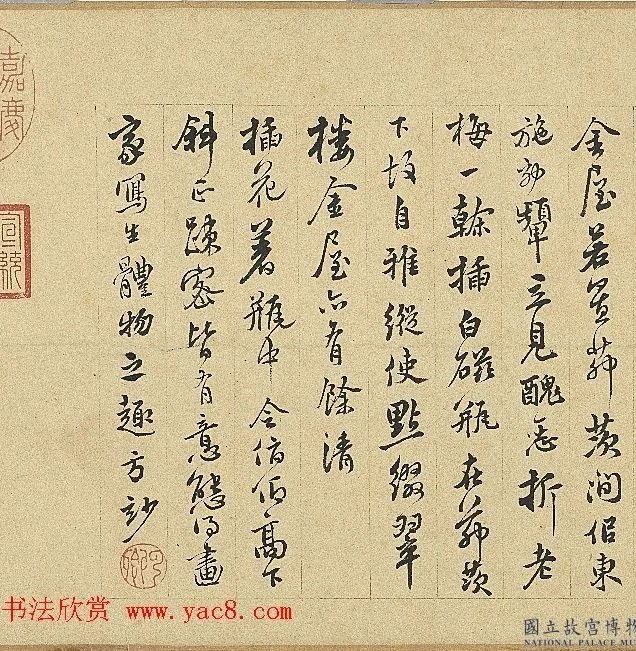 金屋若置茆茨澗侶東
施効顰立見醜惡折老
梅一榦插白磁瓶在茆茨
下故自雅縱使點綴翠
楼金屋亦有餘清
插花著瓶中令俯仰高下
斜正踈密皆有意態得畫
家寫生體物之趣方妙
嘉慶
宣統
书法欣赏 www.yac8.com
國立故宮博物
NATIONAL PALACE MU